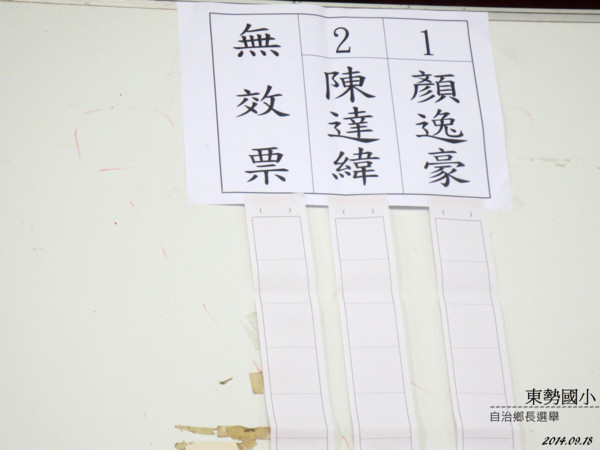 1
顏逸豪
2
陳達緯
無效票
( )
( )
( )
東勢國小
自治鄉長選舉
2014.09.18